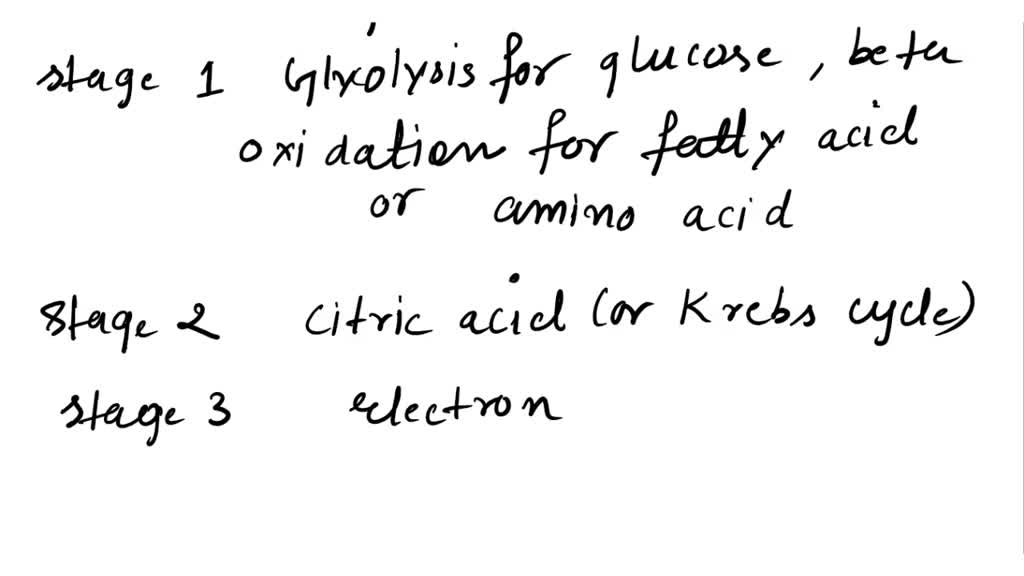 stage 1 Glycolysis for glucose, beta
oxidation for fatty acid
or amino acid
Stage 2 Citric acid (or Krebs cycle)
stage 3 electron